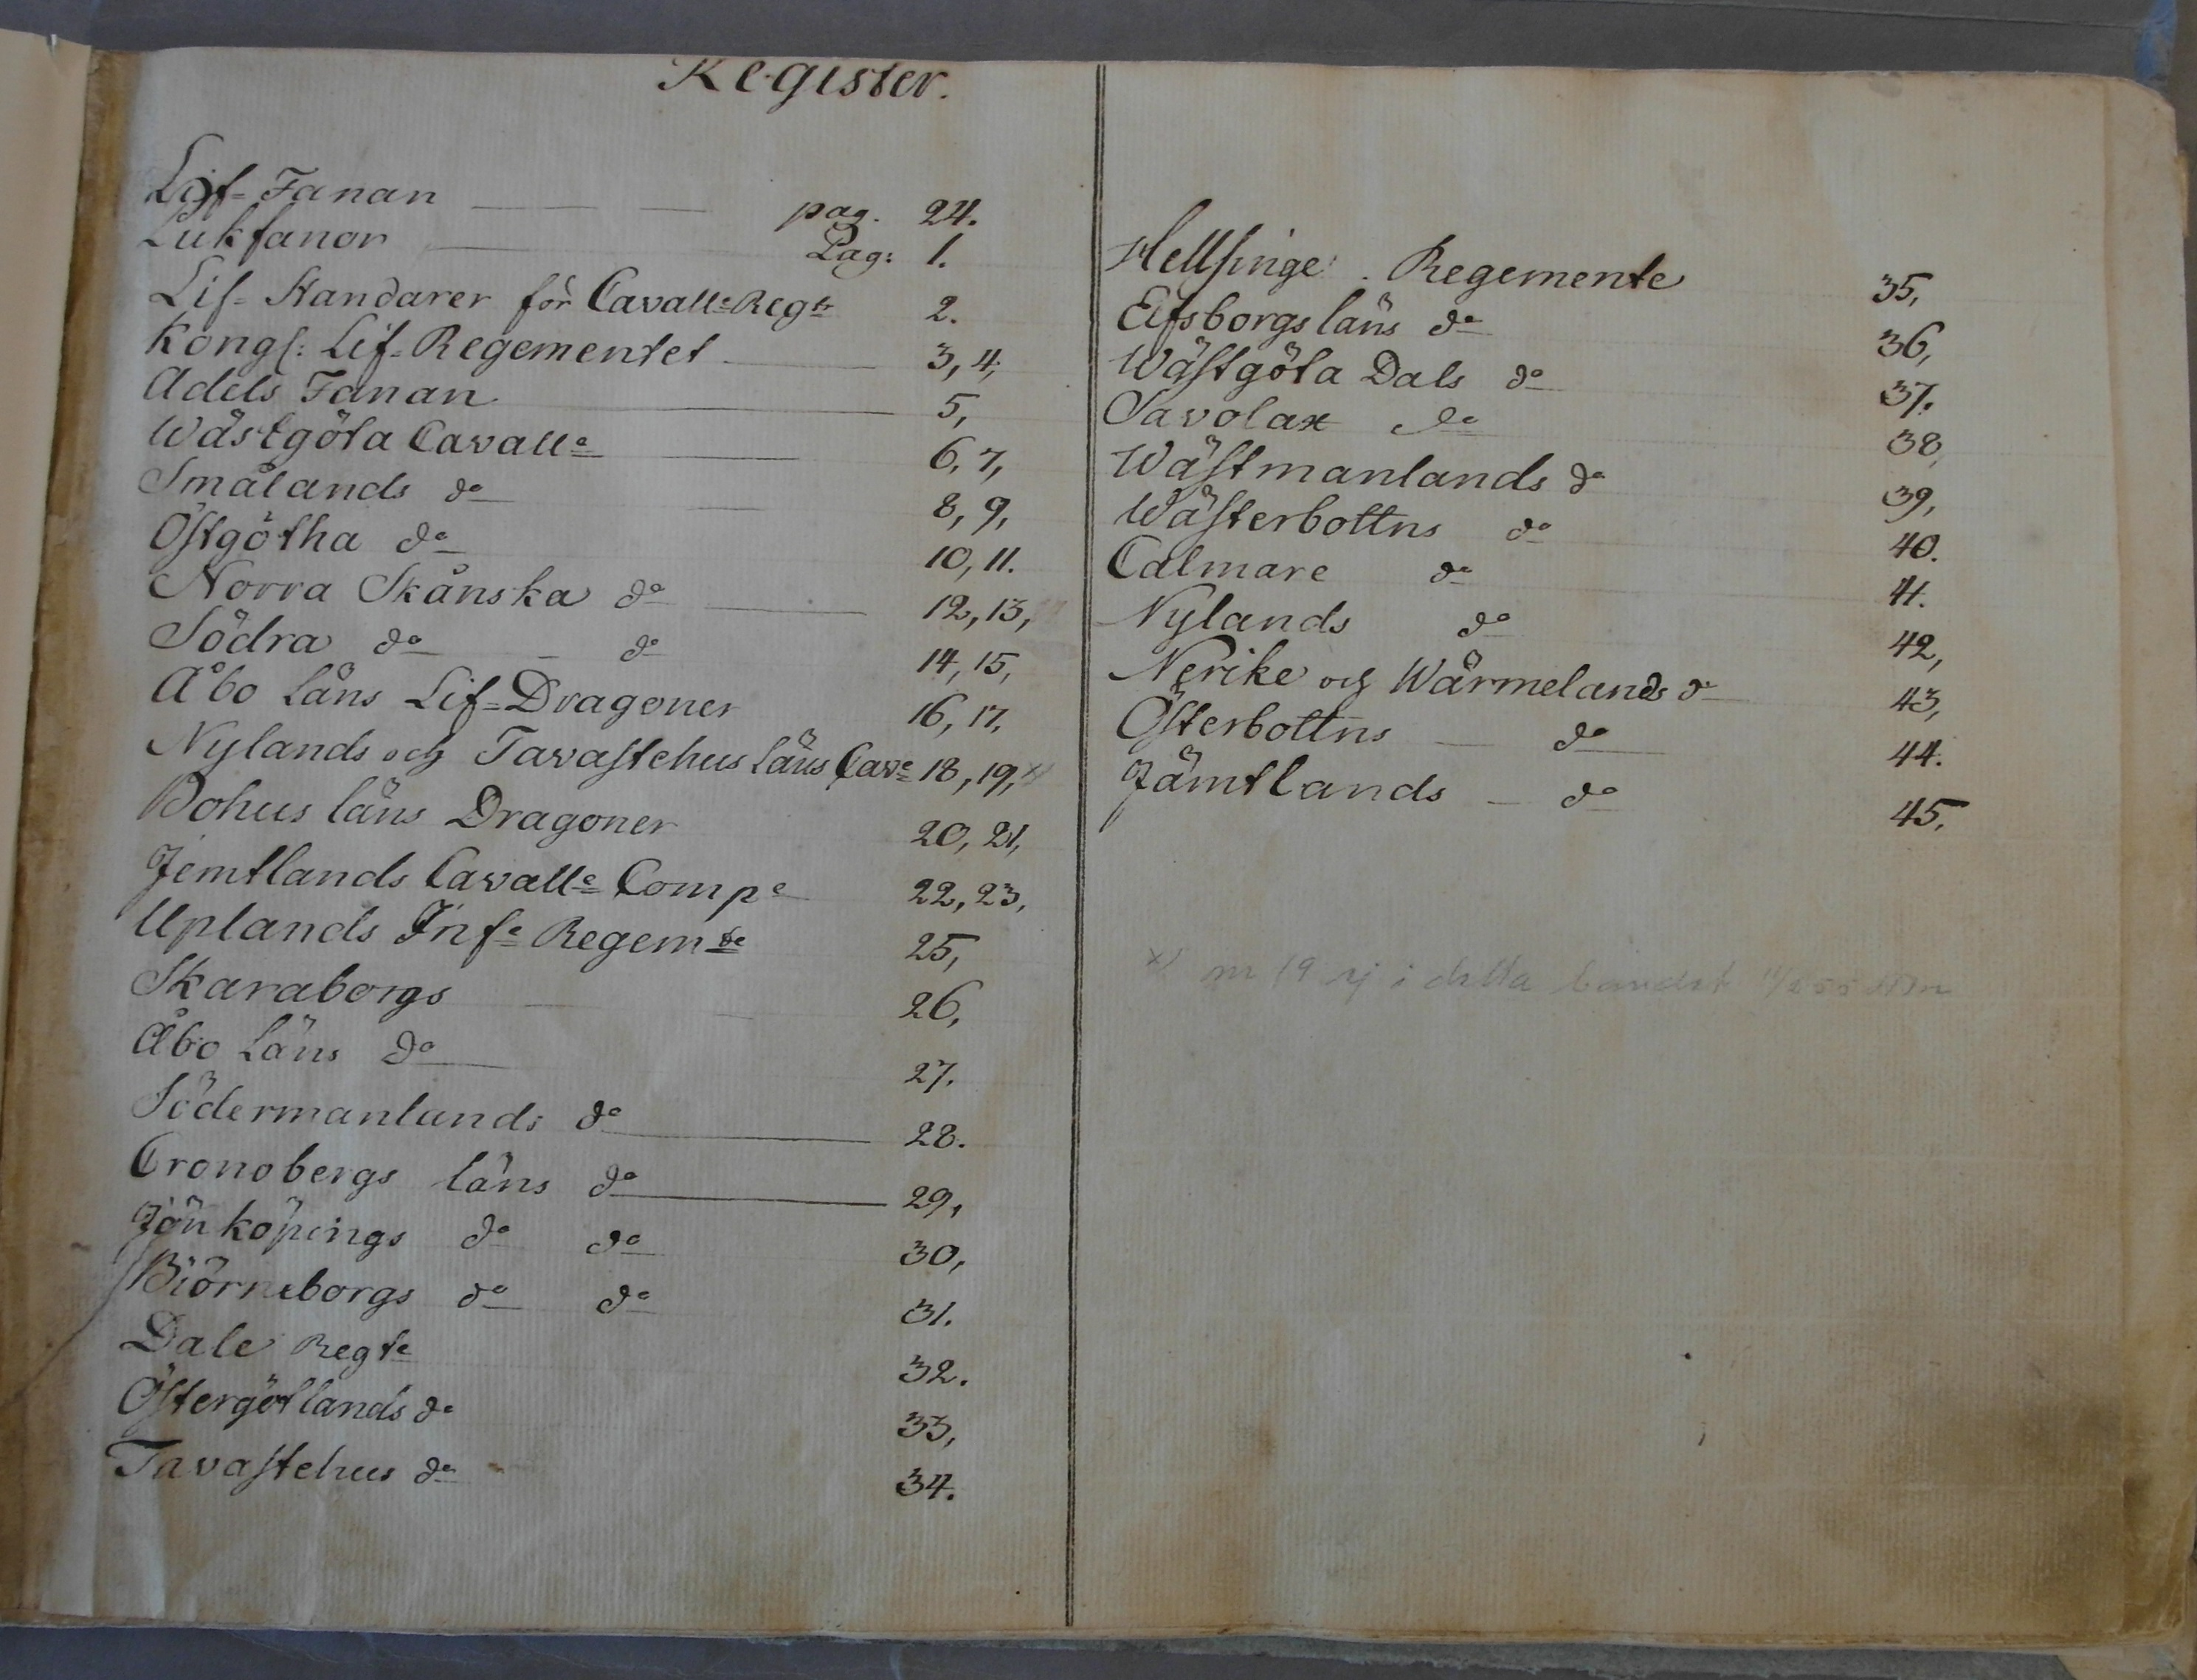 Register.
Lif=Fanan — — — pag. 24.
Lukfanor — Pag: 1.
Lif=Standarer för Cavalle Regtr 2.
Kongl: Lif=Regementet — 3, 4,
Adels Fanan — 5,
Wästgöta Cavalle — 6, 7,
Smålands do — 8, 9,
Östgötha do 10, 11.
Norra Skånska do — 12, 13,
Södra do — do 14, 15,
Åbo Läns Lif=Dragoner 16, 17,
Nylands och Tavastehus läns Cave 18, 19, x)
Bohus läns Dragoner 20, 21,
Jemtlands Cavalle Compe 22, 23,
Uplands Infe Regemte 25,
Skaraborgs — 26,
Åbo Läns do 27.
Södermanlands do — 28.
Cronobergs läns do — 29,
Jönköpings do do 30,
Biörneborgs do do 31.
Dale Regte 32.
Östergötlands do 33,
Tavastehus do 34.
Hellsinge Regemente 35,
Elfsborgs läns do 36,
Wästgöta Dals do 37.
Savolax do 38,
Wästmanlands do 39,
Wästerbottns do 40.
Calmare do 41.
Nylands do 42,
Nerike och Wärmelands do 43,
Österbottns — do 44.
Jämtlands — do 45.
x) nr 19 ej i detta bandet